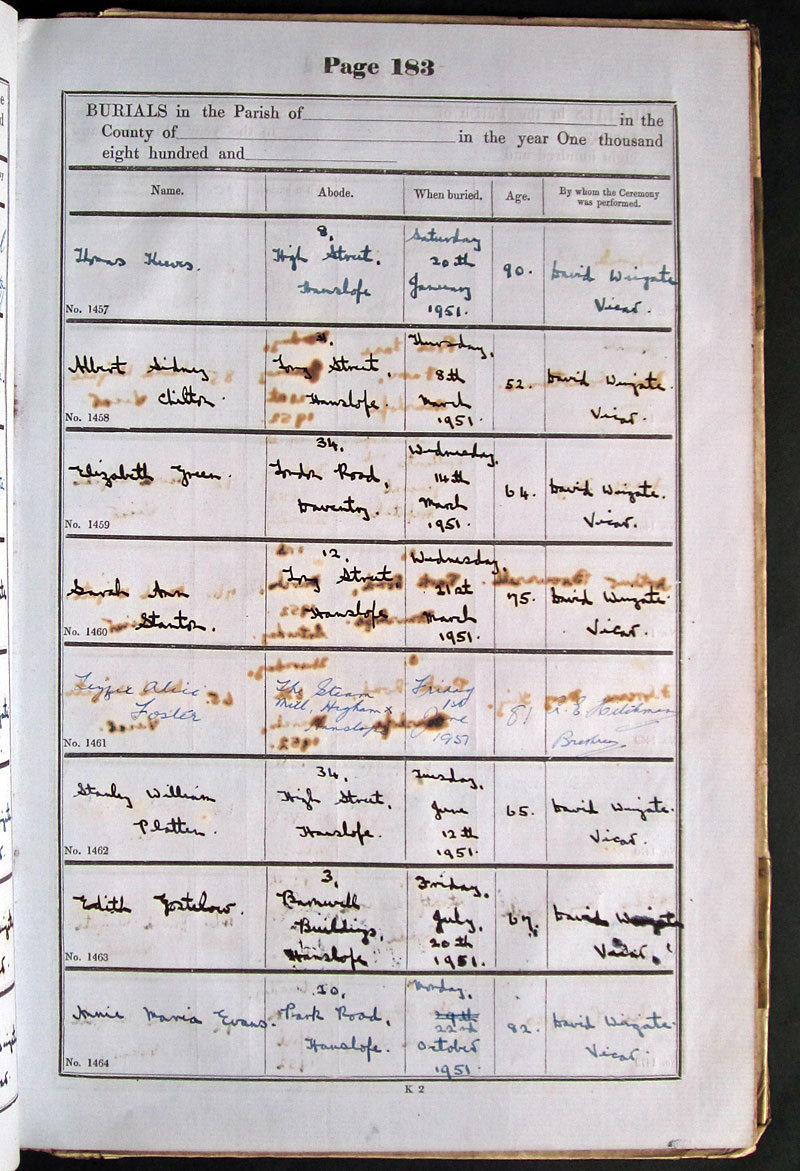 Page 183
BURIALS in the Parish of in the
County of in the year One thousand
eight hundred and
Name. Abode. When buried. Age. By whom the Ceremony was performed.
Thomas
8,
High Street,
Hanslope
Saturday
20th
January
1951.
90.
David Wingate
Vicar.
No. 1457
Albert Sidney
Chilton.
Long Street,
Hanslope.
Thursday,
8th
March
1951.
52.
David Wingate.
Vicar.
No. 1458
Elizabeth Green.
34,
London Road,
Daventry.
Wednesday,
14th
March
1951.
64.
David Wingate.
Vicar.
No. 1459
Sarah Ann
Stanton.
12,
Long Street,
Hanslope
Wednesday,
21st
March
1951.
75.
David Wingate.
Vicar.
No. 1460
Alice
Foster
The Steam
Mill,
Hanslope
Friday
1st
June
1951
81
No. 1461
Stanley William
Platten.
34,
High Street,
Hanslope.
Tuesday,
June
12th
1951.
65.
David Wingate.
Vicar.
No. 1462
Edith Gostelow.
3,
Barnwell
Buildings,
Hanslope
Friday,
July,
20th
1951.
67.
David Wingate
Vicar.
No. 1463
Annie Maria Evans.
20,
Park Road,
Hanslope.
Monday,
29th
22nd
October
1951
82.
David Wingate.
Vicar.
No. 1464
K 2